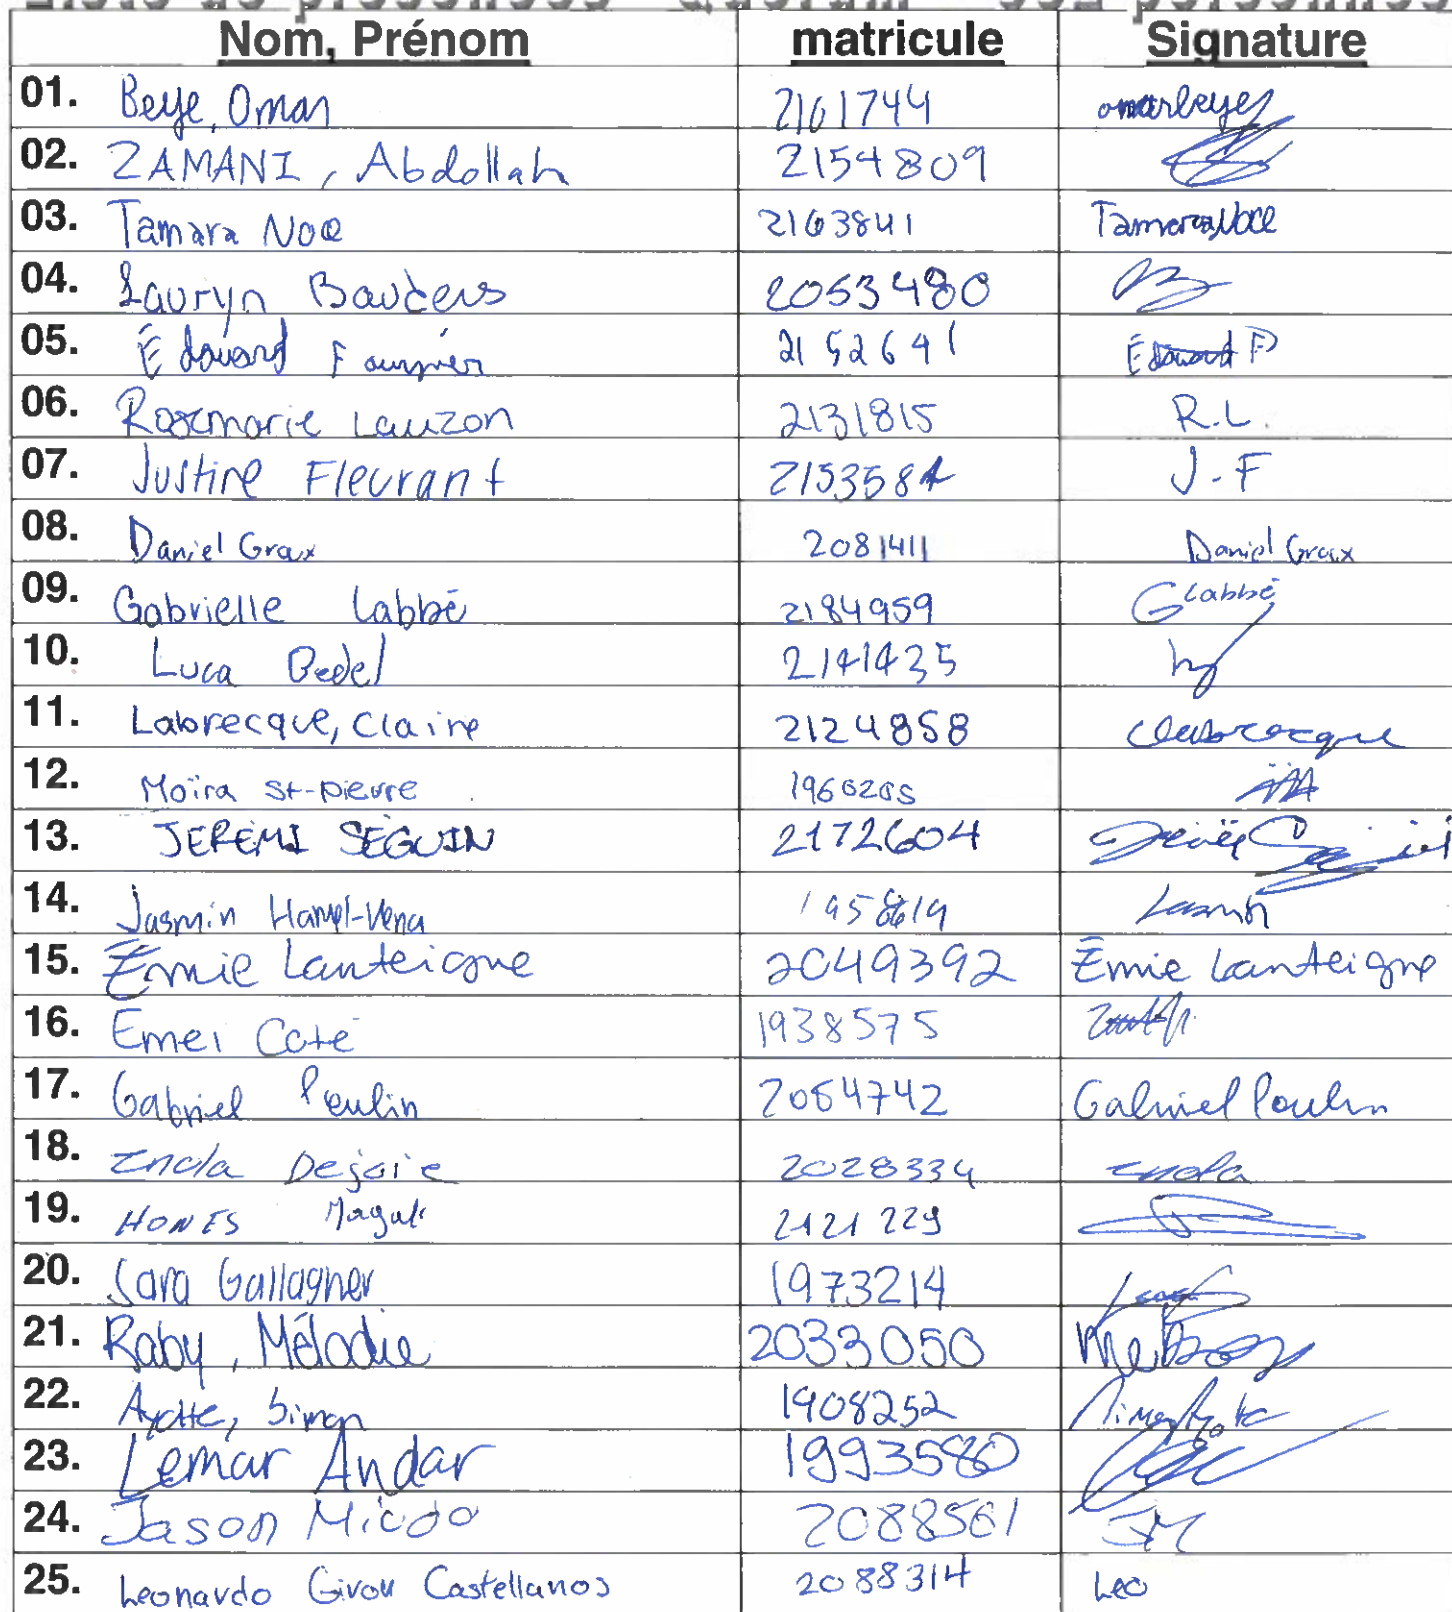 Nom, Prénom matricule Signature
01. Beye, Omar 2161744 omarbeye
02. ZAMANI, Abdollah 2154809
03. Tamara Noce 2163841 Tamara Noce
04. Lauryn Bauters 2053480
05. Édouard Fournier 2152691 Édouard F
06. Rosemarie Lauzon 2131815 R.L.
07. Justine Fleurant 2153584 J-F
08. Daniel Graux 2081411 Daniel Graux
09. Gabrielle Labbé 2184959 GLabbé
10. Luca Bedel 2141435
11. Labrecque, Claire 2124858 CLabrecque
12. Moïra St-pierre
13. JÉRÉMI SÉGUIN 2172604
14. Jasmin Hamel-Vena
15. Émie Lanteigne 2049392 Émie Lanteigne
16. Emei Coté 1938575
17. Gabriel Poulin 2064742 Gabriel Poulin
18. Enola Dejoie 2028334 Enola
19. HONES Magali 2121229
20. Sara Gallagher 1973214
21. Raby, Mélodie 2033050
22. Ayotte, Simon 1908252
23. Lemar Andar 1993580
24. Jason 2088561 JM
25. Leonardo Giron Castellanos 2088314 Leo